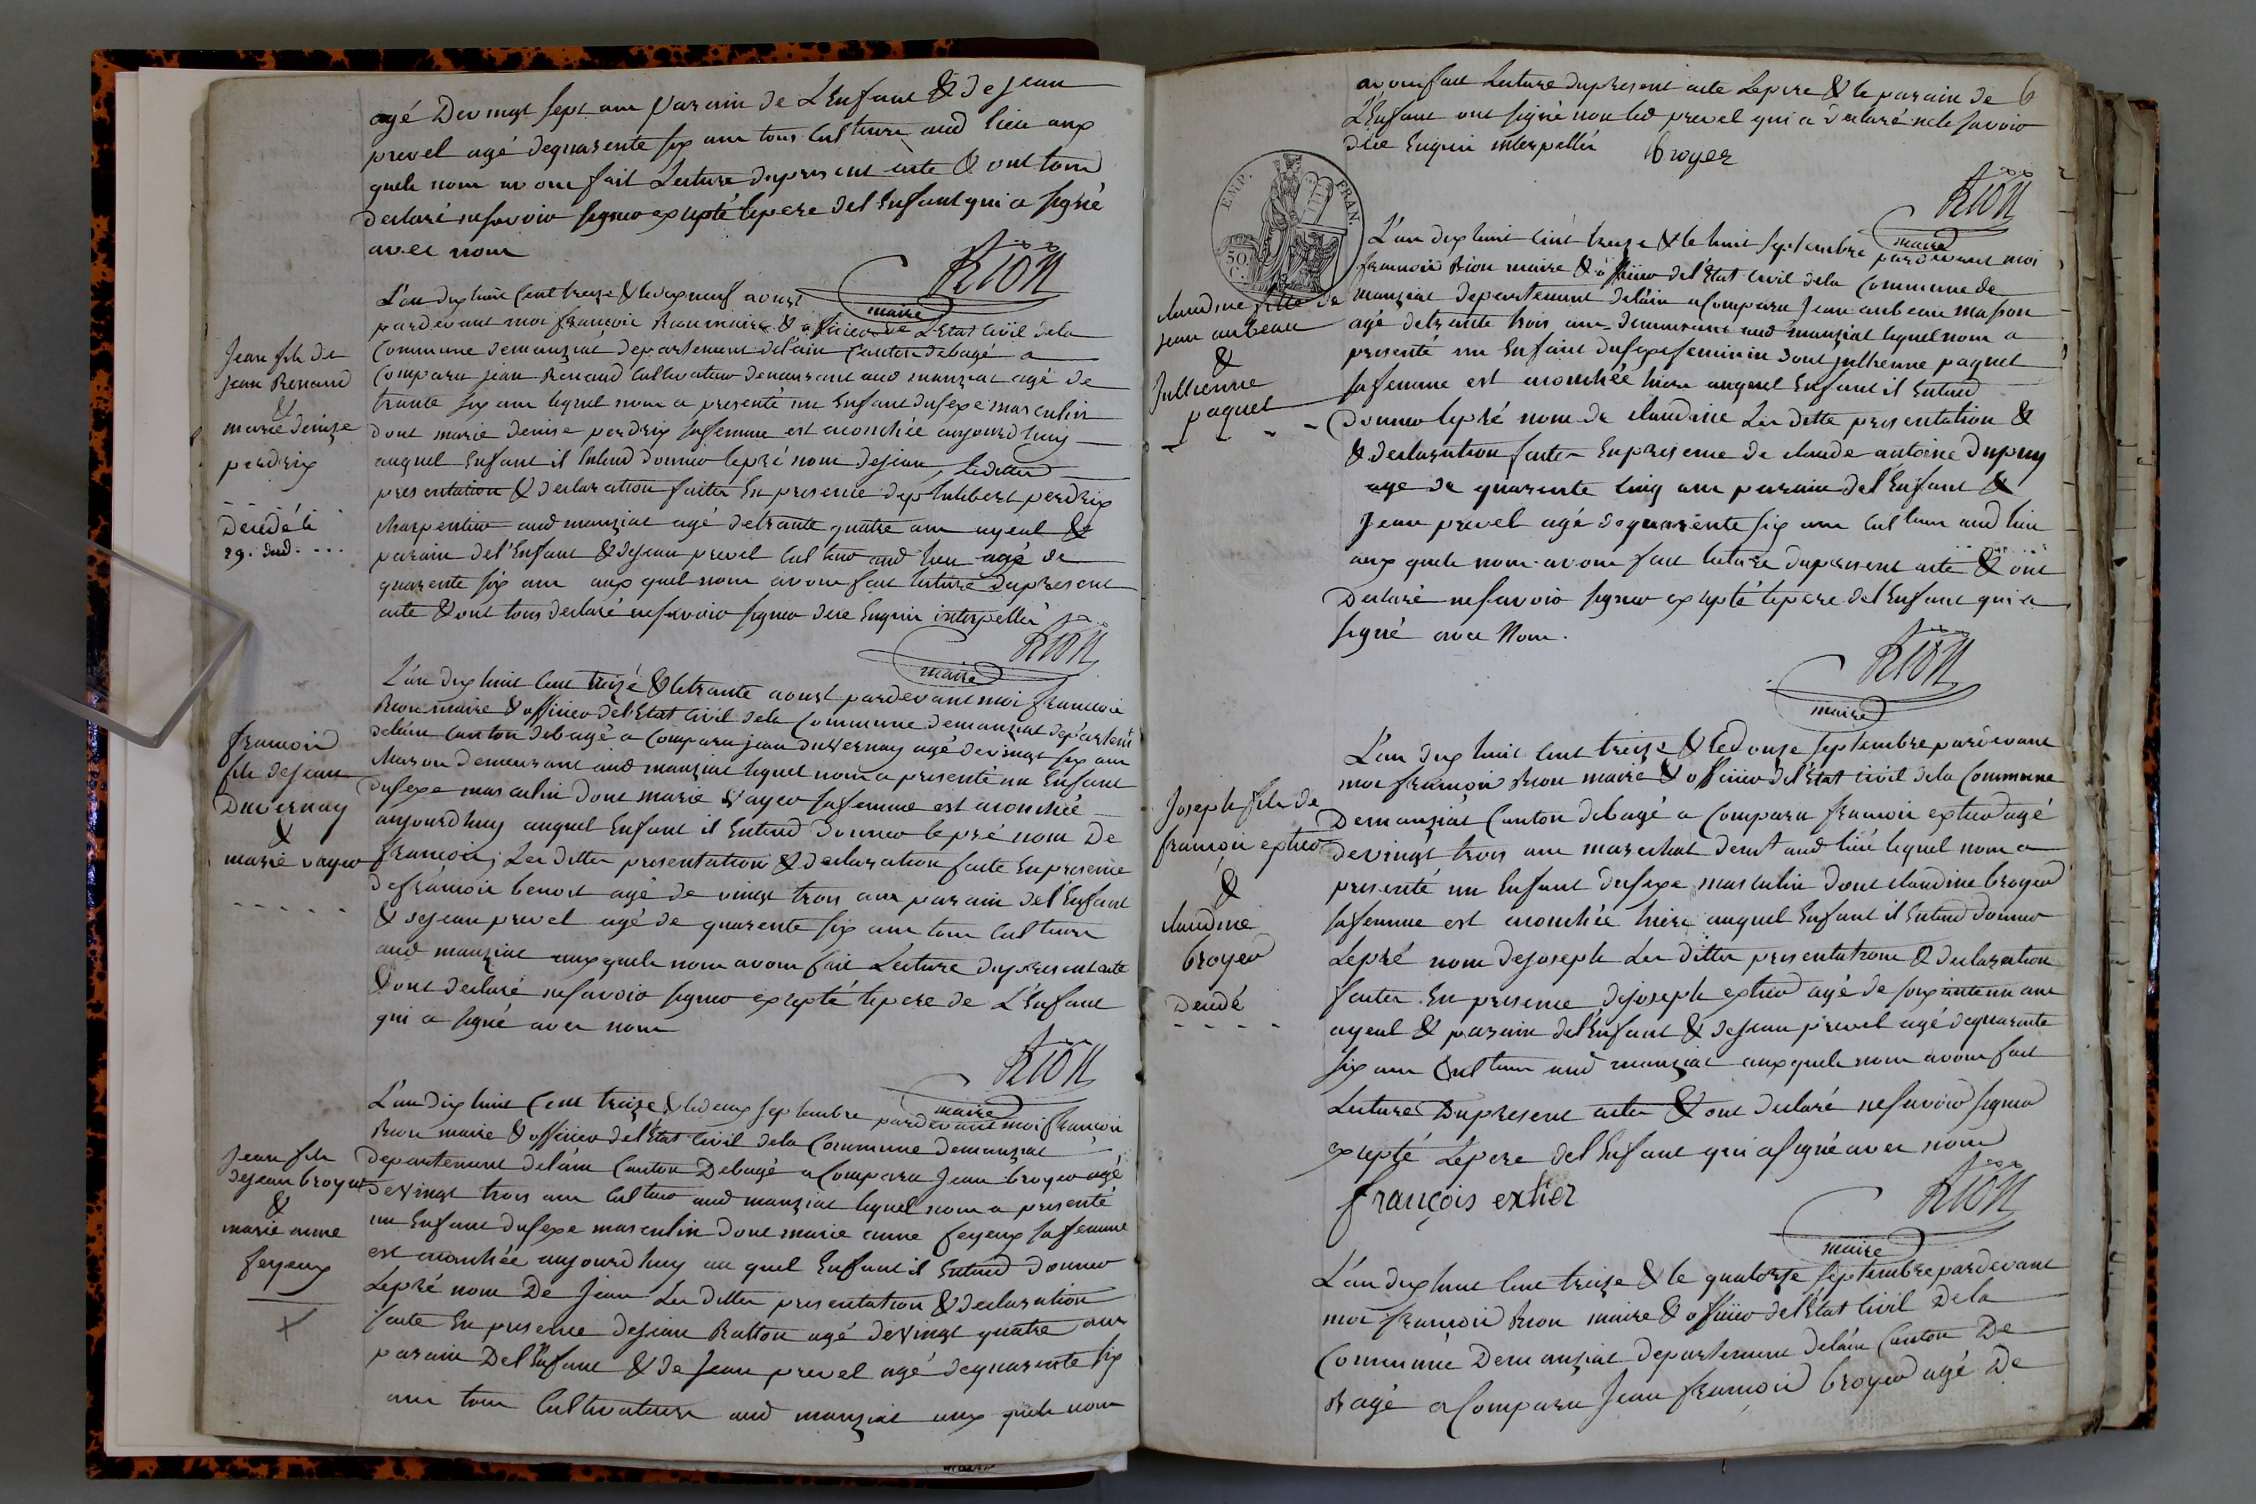 agé De vingt sept ans parain de L'Enfant & de jean
prevel agé de quarente six ans tous Culteurs aud lieu aux
quels nous avons fait Lecture du present acte & ont tous
declaré ne savoir signer excepté le pere de l'Enfant qui a signé
avec nous
Rion
maire
Jean fils de
jean Renaud
&
marie denize
perdrix
Decedé le
29. dud. ...
L'an dix huit Cent treize & le dix neuf aoust
pardevant moi françois Rion maire & officier de L'Etat Civil de la
Commune de manziat departement de l'ain Canton de bagé a
Comparu jean Renaud Cultivateur demeurant aud manziat agé de
trante six ans lequel nous a presenté un Enfant du sexe masculin
dont marie denise perdrix sa femme est acouchée aujourd'huy
auquel Enfant il Entend donner le pré nom de jean, Les dittes
presentation & declaration faites En presence de philibert perdrix
charpentier aud manziat agé de trante quatre ans ayeul &
parain de l'Enfant & de jean prevel Culteur aud lieu agé de
quarente six ans aux quel nous avons fait lecture du present
acte & ont tous declaré ne savoir signer de ce Enquis interpellés
Rion
maire
françois
fils de jean
Duvernay
&
marie vayer
L'an dix huit Cent treize & le trante aoust pardevant moi françois
Rion maire & officier de l'Etat Civil de la Commune de manziat departent
de l'ain Canton de bagé a Comparu jean duvernay agé de vingt six ans
Masson demeurant aud manziat lequel nous a presenté un Enfant
du sexe masculin dont marie vayer sa femme est acouchée
aujourd'huy auquel Enfant il Entend donner le pré nom De
françois; Les dittes presentation & declaration faite En presence
de françois benost agé de vingt trois ans parain de l'Enfant
& de jean prevel agé de quarente six ans tous Culteurs
aud manziat aux quels nous avons fait Lecture du present acte
& ont declaré ne savoir signer excepté le pere de L'Enfant
qui a signé avec nous
Rion
maire
Jean fils
de jean broyer
&
marie anne
feyeux
L'an dix huit Cent treize & le deux septembre pardevant moi françois
Rion maire & officier de l'Etat Civil de la Commune de manziat
departement de l'ain Canton De bagé a Comparu Jean broyer agé
de vingt trois ans Culteur aud manziat lequel nous a presenté
un Enfant du sexe masculin dont marie anne feyeux sa femme
est acouchée aujourd'huy au quel Enfant il Entend donner
Le pré nom De Jean Les dittes presentation & declaration
faite En presence de jean Ratton agé de vingt quatre ans
parain De l'Enfant & de Jean prevel agé de quarente six
ans tous Cultivateurs aud manziat aux quels nous
avons fait Lecture du present acte Le pere & le parain de
6
L'Enfant ont signé non led prevel qui a declaré ne le savoir
de ce Enquis interpellés
broyer
Rion
maire
EMP. FRAN.
50. C.
claudine fille de
jean aubeau
&
Jullienne
paquet
L'an dix huit Cent treize & le huit septembre pardevant moi
françois Rion maire & officier de l'Etat Civil de la Commune de
manziat departement de l'ain a Comparu Jean aubeau masson
agé de trante trois ans demeurant aud manziat lequel nous a
presenté un Enfant du sexe feminin dont jullienne paquet
sa femme est acouchée hier auquel Enfant il Entend
donner le pré nom de claudine Les dittes presentation &
& declaration faites En presence de claude antoine dupuy
age de quarente Cinq ans parain de l'Enfant &
Jean prevel agé de quarente six ans Culteurs aud lieu
aux quels nous avons fait lecture du present acte & ont
Declaré ne savoir signer excepté le pere de l'Enfant qui a
signé avec Nous.
Rion
maire
Joseph fils de
françois extier
&
claudine
broyer
Decedé
L'an dix huit Cent treize & le douze septembre pardevant
moi françois Rion maire & officier de l'Etat Civil de la Commune
De manziat Canton de bagé a Comparu françois extier agé
de vingt trois ans marechal demt aud lieu lequel nous a
presenté un Enfant du sexe masculin dont claudine broyer
sa femme est acouchée hier auquel Enfant il Entend donner
Le pré nom de joseph Les dittes presentations & declaration
faites En presence de joseph extier agé de soixante un ans
ayeul & parain de l'Enfant & de jean prevel agé de quarente
six ans Culteurs aud manziat aux quels nous avons fait
Lecture Du present acte & ont declaré ne savoir signer
Excepté Le pere de l'Enfant qui a signé avec nous
françois extier
Rion
maire
L'an dix huit Cent treize & le quatorze septembre pardevant
moi françois Rion maire & officier de l'Etat Civil De la
Commune De manziat departement de l'ain Canton De
Bagé a Comparu Jean françois broyer agé De